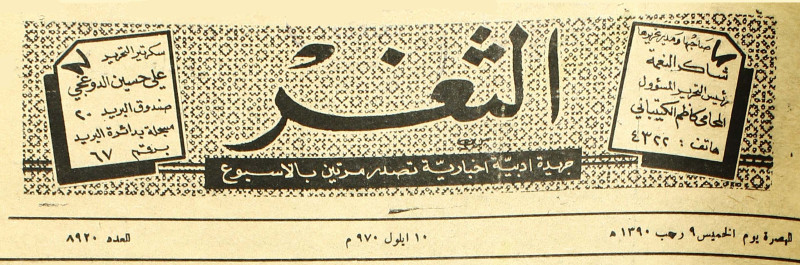 صاحبها ومدير تحريرها
شاكر النعمة
رئيس التحرير المسؤول
المحامي كاظم الكيتباني
هاتف : ٤٣٢٢
الثغر
جريدة ادبية اخبارية تصدر مرتين بالاسبوع
سكرتير التحرير
علي حسين الدوغجي
صندوق البريد ٢٠
مسجلة بدائرة البريد
برقم ٦٧
البصرة يوم الخميس ٩ رجب ١٣٩٠ ه
١٠ ايلول ٩٧٠ م
العدد ٨٩٢٠